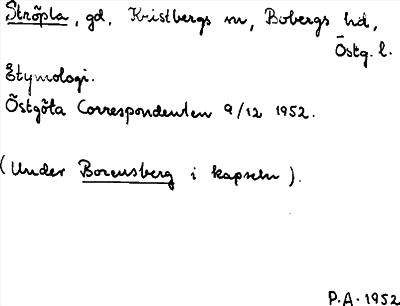 Ströpla, gd, Kristbergs sn, Bobergs hd,
Östg. l.
Etymologi.
Östgöta Correspondenten 9/12 1952.
(Under Borensberg i kapseln).
P.A. 1952